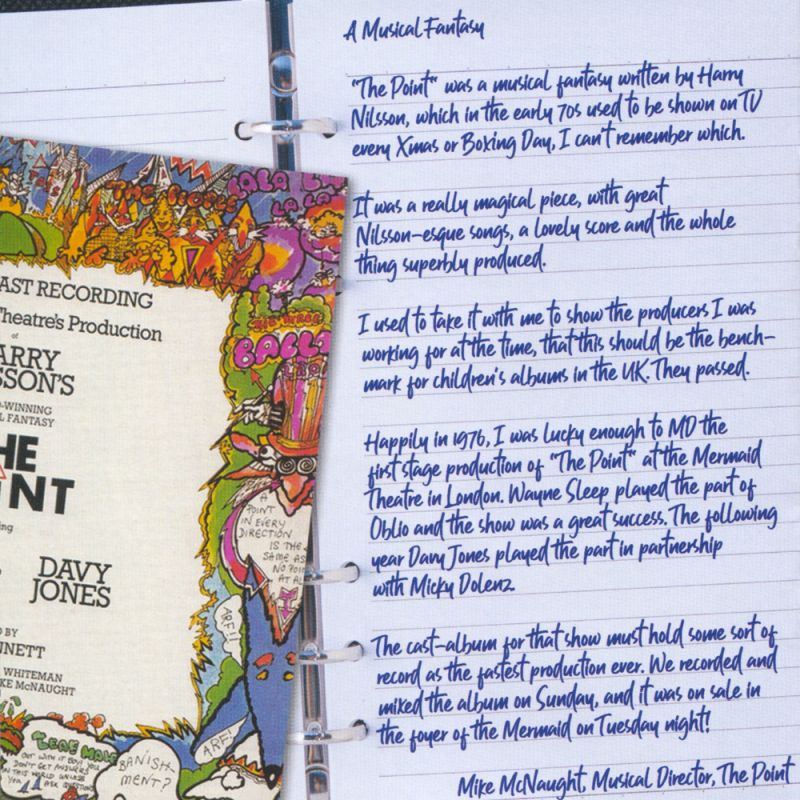 A Musical Fantasy
"The Point" was a musical fantasy written by Harry
Nilsson, which in the early 70s used to be shown on TV
every Xmas or Boxing Day, I can't remember which.
It was a really magical piece, with great
Nilsson-esque songs, a lovely score and the whole
thing superbly produced.
I used to take it with me to show the producers I was
working for at the time, that this should be the bench-
mark for children's albums in the UK. They passed.
Happily in 1976, I was lucky enough to MD the
first stage production of "The Point" at the Mermaid
Theatre in London. Wayne Sleep played the part of
Oblio and the show was a great success. The following
year Davy Jones played the part in partnership
with Micky Dolenz.
The cast-album for that show must hold some sort of
record as the fastest production ever. We recorded and
mixed the album on Sunday, and it was on sale in
the foyer of the Mermaid on Tuesday night!
Mike McNaught, Musical Director, The Point
THE PEOPLE
LALA LA
BALL
AST RECORDING
Theatre's Production
of
ARRY
SSON'S
-WINNING
L FANTASY
HE
NT
ing
DAVY
JONES
D BY
NNETT
WHITEMAN
KE McNAUGHT
A
POINT
IN EVERY
DIRECTION
IS THE
SAME AS
NO POI
AT AL
ARF!!
ARF!
LEAF MAN
OUT WITH IT BOY! YOU
DON'T GET ANSWERS
IN THIS WORLD UNLESS
YOU ASK QUESTIONS
BANISH-
MENT?